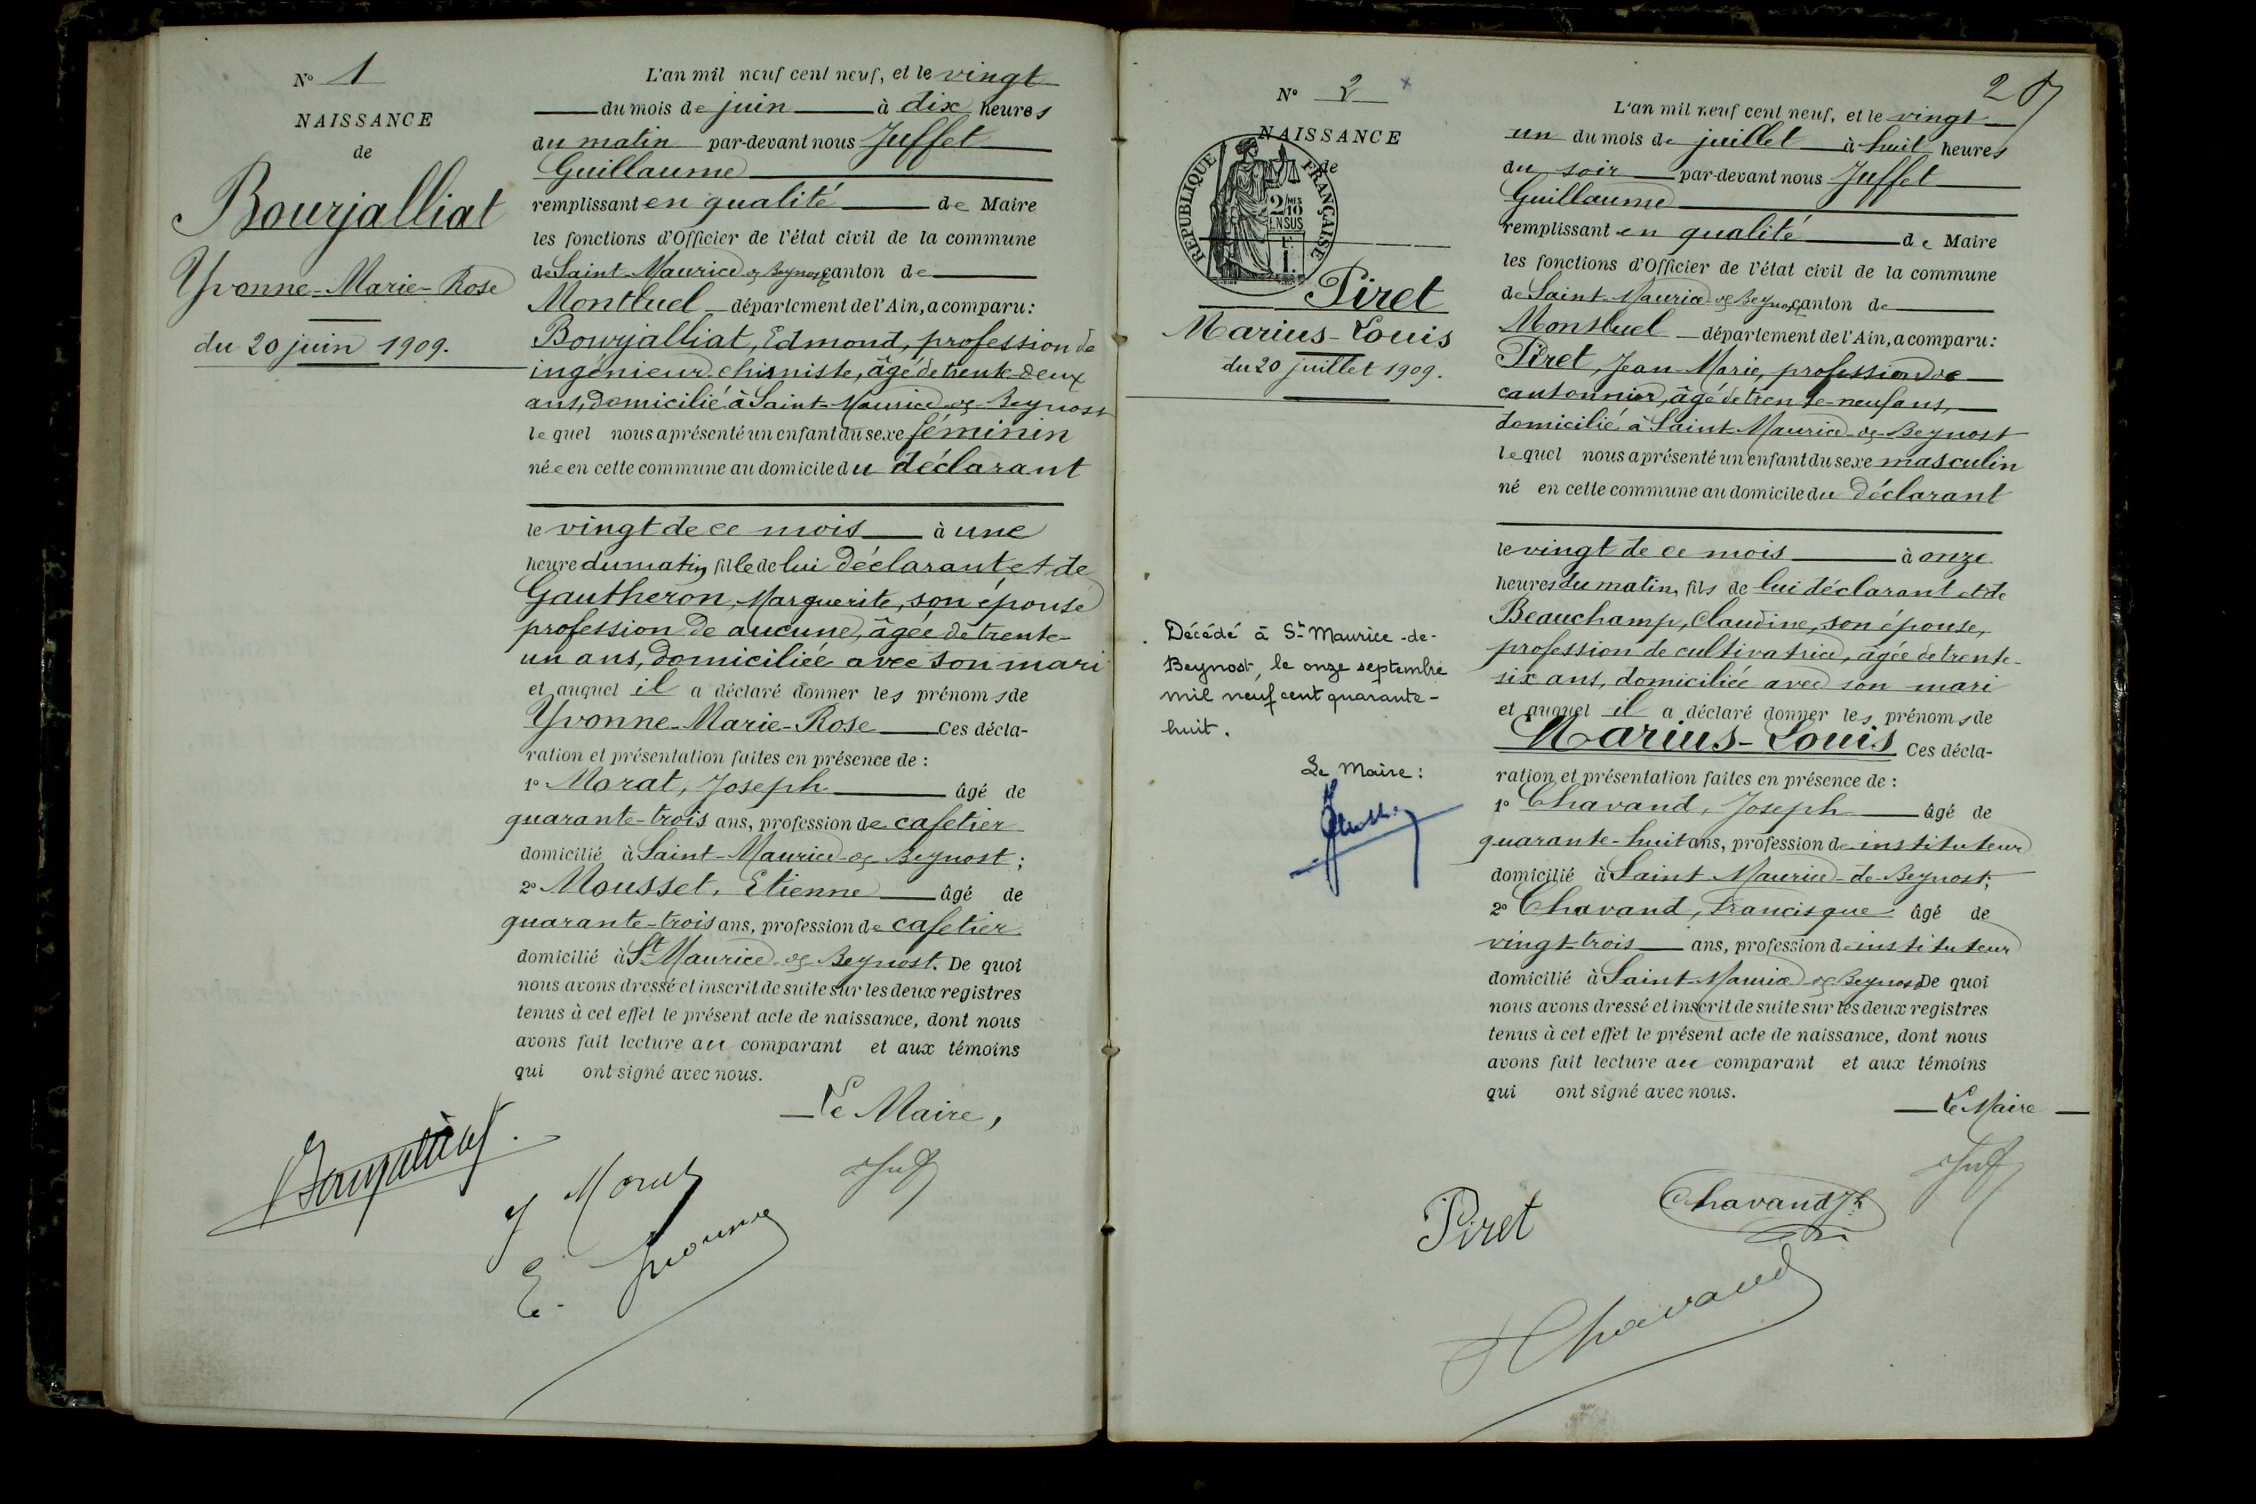 N° 1
NAISSANCE
de
Bourjalliat
Yvonne-Marie-Rose
du 20 juin 1909.
L'an mil neuf cent neuf, et le vingt
du mois de juin à dix heures
du matin par-devant nous Juffet
Guillaume
remplissant en qualité de Maire
les fonctions d'Officier de l'état civil de la commune
de Saint-Maurice de Beynost canton de
Montluel département de l'Ain, a comparu :
Bourjalliat, Edmond, profession de
ingénieur chimiste, âgé de trente-deux
ans, domicilié à Saint-Maurice-de-Beynost
lequel nous a présenté un enfant du sexe féminin
née en cette commune au domicile du déclarant
le vingt de ce mois à une
heure du matin, fille de lui déclarant et de
Gautheron, Marguerite, son épouse
profession de aucune, âgée de trente-
un ans, domiciliée avec son mari
et auquel il a déclaré donner les prénoms de
Yvonne-Marie-Rose Ces décla-
ration et présentation faites en présence de :
1° Morat, Joseph âgé de
quarante-trois ans, profession de cafetier
domicilié à Saint-Maurice-de-Beynost ;
2° Mousset, Etienne âgé de
quarante-trois ans, profession de cafetier
domicilié à St Maurice-de-Beynost. De quoi
nous avons dressé et inscrit de suite sur les deux registres
tenus à cet effet le présent acte de naissance, dont nous
avons fait lecture au comparant et aux témoins
qui ont signé avec nous.
Le Maire,
Bourjalliat
J Morat
E.
N° 2
NAISSANCE
de
REPUBLIQUE FRANÇAISE
2/10 EN SUS
Piret
Marius-Louis
du 20 juillet 1909.
Décédé à St Maurice-de-
Beynost, le onze septembre
mil neuf cent quarante-
huit.
Le Maire :
L'an mil neuf cent neuf, et le vingt
un du mois de juillet à huit heures
du soir par-devant nous Juffet
Guillaume
remplissant en qualité de Maire
les fonctions d'Officier de l'état civil de la commune
de Saint-Maurice de Beynost canton de
Montluel département de l'Ain, a comparu :
Piret, Jean-Marie, profession de
cantonnier, âgé de trente-neuf ans,
domicilié à Saint-Maurice-de-Beynost
lequel nous a présenté un enfant du sexe masculin
né en cette commune au domicile du déclarant
le vingt de ce mois à onze
heures du matin, fils de lui déclarant et de
Beauchamp, Claudine, son épouse,
profession de cultivatrice, âgée de trente-
six ans, domiciliée avec son mari
et auquel il a déclaré donner les prénoms de
Marius-Louis Ces décla-
ration et présentation faites en présence de :
1° Chavand, Joseph âgé de
quarante-huit ans, profession de instituteur
domicilié à Saint Maurice-de-Beynost;
2° Chavand, Francisque âgé de
vingt-trois ans, profession de instituteur
domicilié à Saint-Maurice de Beynost De quoi
nous avons dressé et inscrit de suite sur les deux registres
tenus à cet effet le présent acte de naissance, dont nous
avons fait lecture au comparant et aux témoins
qui ont signé avec nous.
Le Maire
Piret
Chavand Jh
F Chavand